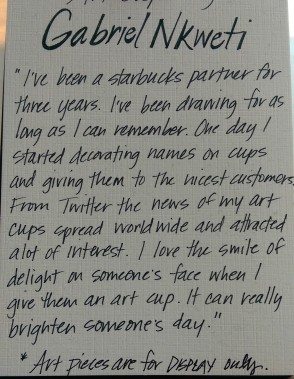 Gabriel Nkweti
"I've been a starbucks partner for
three years. I've been drawing for as
long as I can remember. One day I
started decorating names on cups
and giving them to the nicest customers.
From Twitter the news of my art
cups spread worldwide and attracted
alot of interest. I love the smile of
delight on someone's face when I
give them an art cup. It can really
brighten someone's day."
* Art pieces are for DISPLAY only.